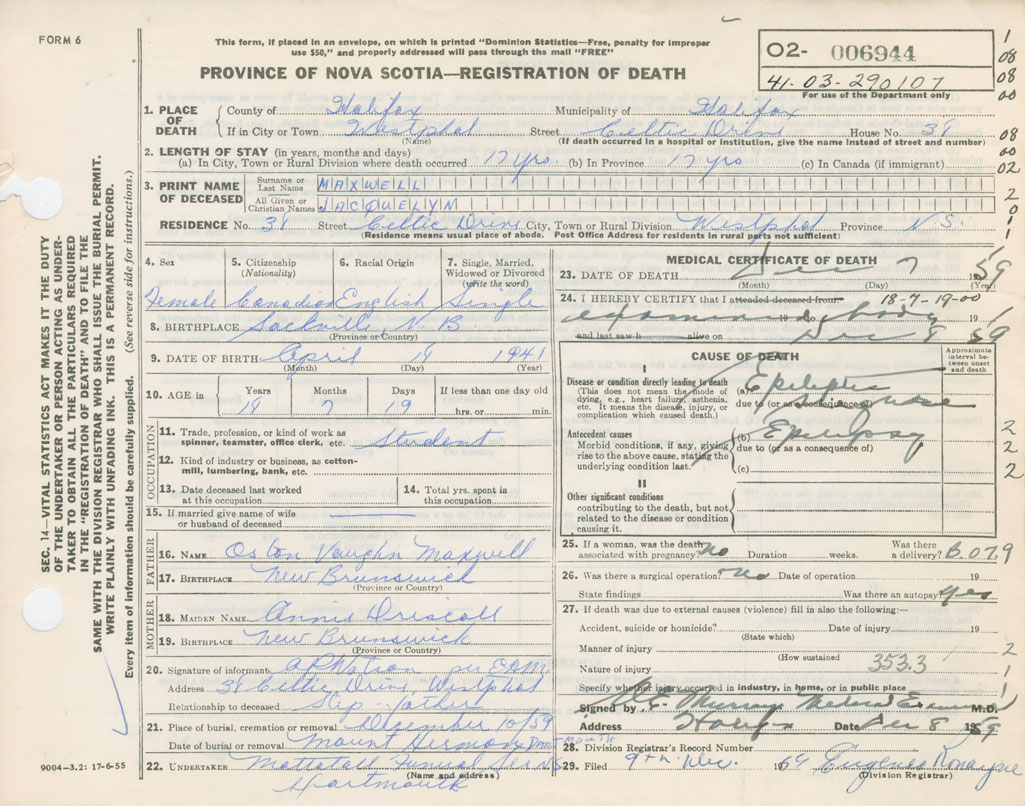 FORM 6
This form, if placed in an envelope, on which is printed "Dominion Statistics—Free, penalty for improper
use $50," and properly addressed will pass through the mail "FREE"
PROVINCE OF NOVA SCOTIA—REGISTRATION OF DEATH
O2- 006944
41-03-290107
For use of the Department only
1
08
08
00
1. PLACE OF DEATH
County of Halifax Municipality of Halifax
If in City or Town Westphal Street Celtic Drive House No. 38
(Name) (If death occurred in a hospital or institution, give the name instead of street and number)
08
00
02
2. LENGTH OF STAY (in years, months and days)
(a) In City, Town or Rural Division where death occurred 17 yrs. (b) In Province 17 yrs (c) In Canada (if immigrant)
3. PRINT NAME OF DECEASED
Surname or Last Name MAXWELL
All Given or Christian Names JACQUELYN
2
0
1
1
RESIDENCE No. 38 Street Celtic Drive City, Town or Rural Division Westphal Province N.S.
(Residence means usual place of abode. Post Office Address for residents in rural parts not sufficient)
4. Sex 5. Citizenship (Nationality) 6. Racial Origin 7. Single, Married, Widowed or Divorced (write the word)
Female Canadian English Single
8. BIRTHPLACE Sackville, N.B.
(Province or Country)
9. DATE OF BIRTH April 19 1941
(Month) (Day) (Year)
10. AGE in Years Months Days If less than one day old
18 7 19 hrs. or min.
OCCUPATION
11. Trade, profession, or kind of work as
spinner, teamster, office clerk, etc. Student
12. Kind of industry or business, as cotton-
mill, lumbering, bank, etc.
13. Date deceased last worked
at this occupation
14. Total yrs. spent in
this occupation
15. If married give name of wife
or husband of deceased
FATHER
16. NAME Vaughn Maxwell
17. BIRTHPLACE New Brunswick
(Province or Country)
MOTHER
18. MAIDEN NAME Annie Driscoll
19. BIRTHPLACE New Brunswick
(Province or Country)
20. Signature of informant A P Watson per EAM
Address 38 Celtic Drive, Westphal
Relationship to deceased Step-father
21. Place of burial, cremation or removal December 10/59
Date of burial or removal Mount Hermon, Dartmouth
22. UNDERTAKER Mattatall Funeral Service
(Name and address)
Dartmouth
MEDICAL CERTIFICATE OF DEATH
23. DATE OF DEATH Dec 7 1959
(Month) (Day) (Year)
24. I HEREBY CERTIFY that I attended deceased from: 18-7-19-00
examined 19 to body 19
and last saw h alive on Dec 8 59
1
CAUSE OF DEATH
Approximate interval between onset and death
I
Disease or condition directly leading to death
(This does not mean the mode of
dying, e.g., heart failure, asthenia,
etc. It means the disease, injury, or
complication which caused death.)
(a) Epileptic
due to (or as a consequence of) seizure
Antecedent causes
Morbid conditions, if any, giving
rise to the above cause, stating the
underlying condition last.
(b) Epilepsy
due to (or as a consequence of)
(c)
2
2
2
II
Other significant conditions
contributing to the death, but not
related to the disease or condition
causing it.
25. If a woman, was the death
associated with pregnancy? no Duration weeks. Was there a delivery? B.07.9
26. Was there a surgical operation? no Date of operation 19
State findings Was there an autopsy? yes
27. If death was due to external causes (violence) fill in also the following:—
Accident, suicide or homicide? Date of injury 19
(State which)
Manner of injury
(How sustained)
2
Nature of injury 353.3
1
Specify whether injury occurred in industry, in home, or in public place
1
Signed by M.D.
Address Halifax Date Dec 8 1959
28. Division Registrar's Record Number
29. Filed 9th Dec. 1959 Eugene Ronayne
(Division Registrar)
SEC. 14—VITAL STATISTICS ACT MAKES IT THE DUTY
OF THE UNDERTAKER OR PERSON ACTING AS UNDER-
TAKER TO OBTAIN ALL THE PARTICULARS REQUIRED
IN THE "REGISTRATION OF DEATH" AND TO FILE THE
SAME WITH THE DIVISION REGISTRAR WHO SHALL ISSUE THE BURIAL PERMIT.
WRITE PLAINLY WITH UNFADING INK. THIS IS A PERMANENT RECORD.
Every item of information should be carefully supplied. (See reverse side for instructions.)
9004-3.2: 17-6-55